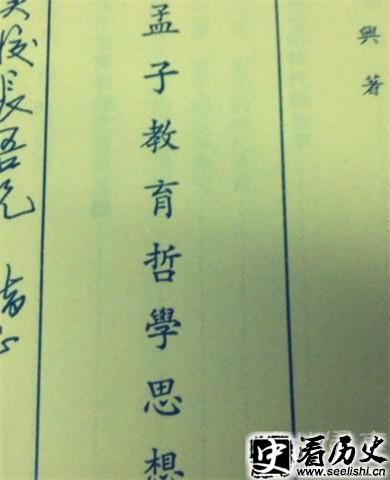 興著
孟子教育哲學思想
長吾兄
史看历史
www.seelishi.cn